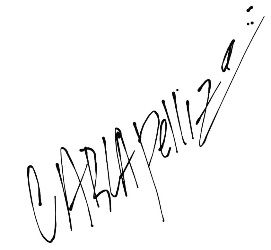 CARLA Pelliza